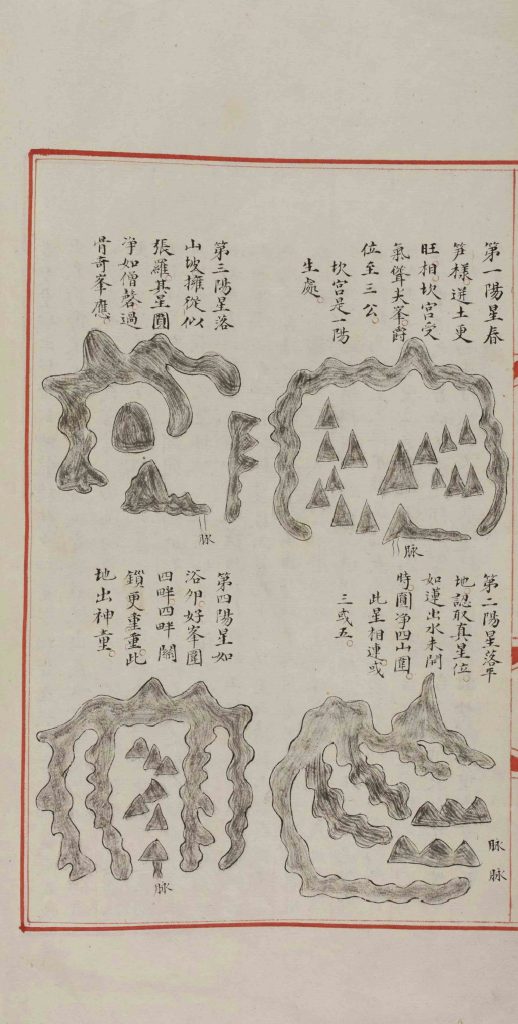 第一陽星春
笋樣迸土更
旺相坎宮受
氣聳大峯爵
位至三公。
坎宮是一陽
生處。
脉
第二陽星落平
地認取真星位。
如蓮出水未開
時圓淨四山圍。
此星相連或
三或五。
脉
脉
第三陽星落
山坡擁從似
張羅其星圓
淨如僧磬過
骨奇峯應。
脉
第四陽星如
浴卵好峯圍
四畔四畔關
鎖更重重。此
地出神童。
脉